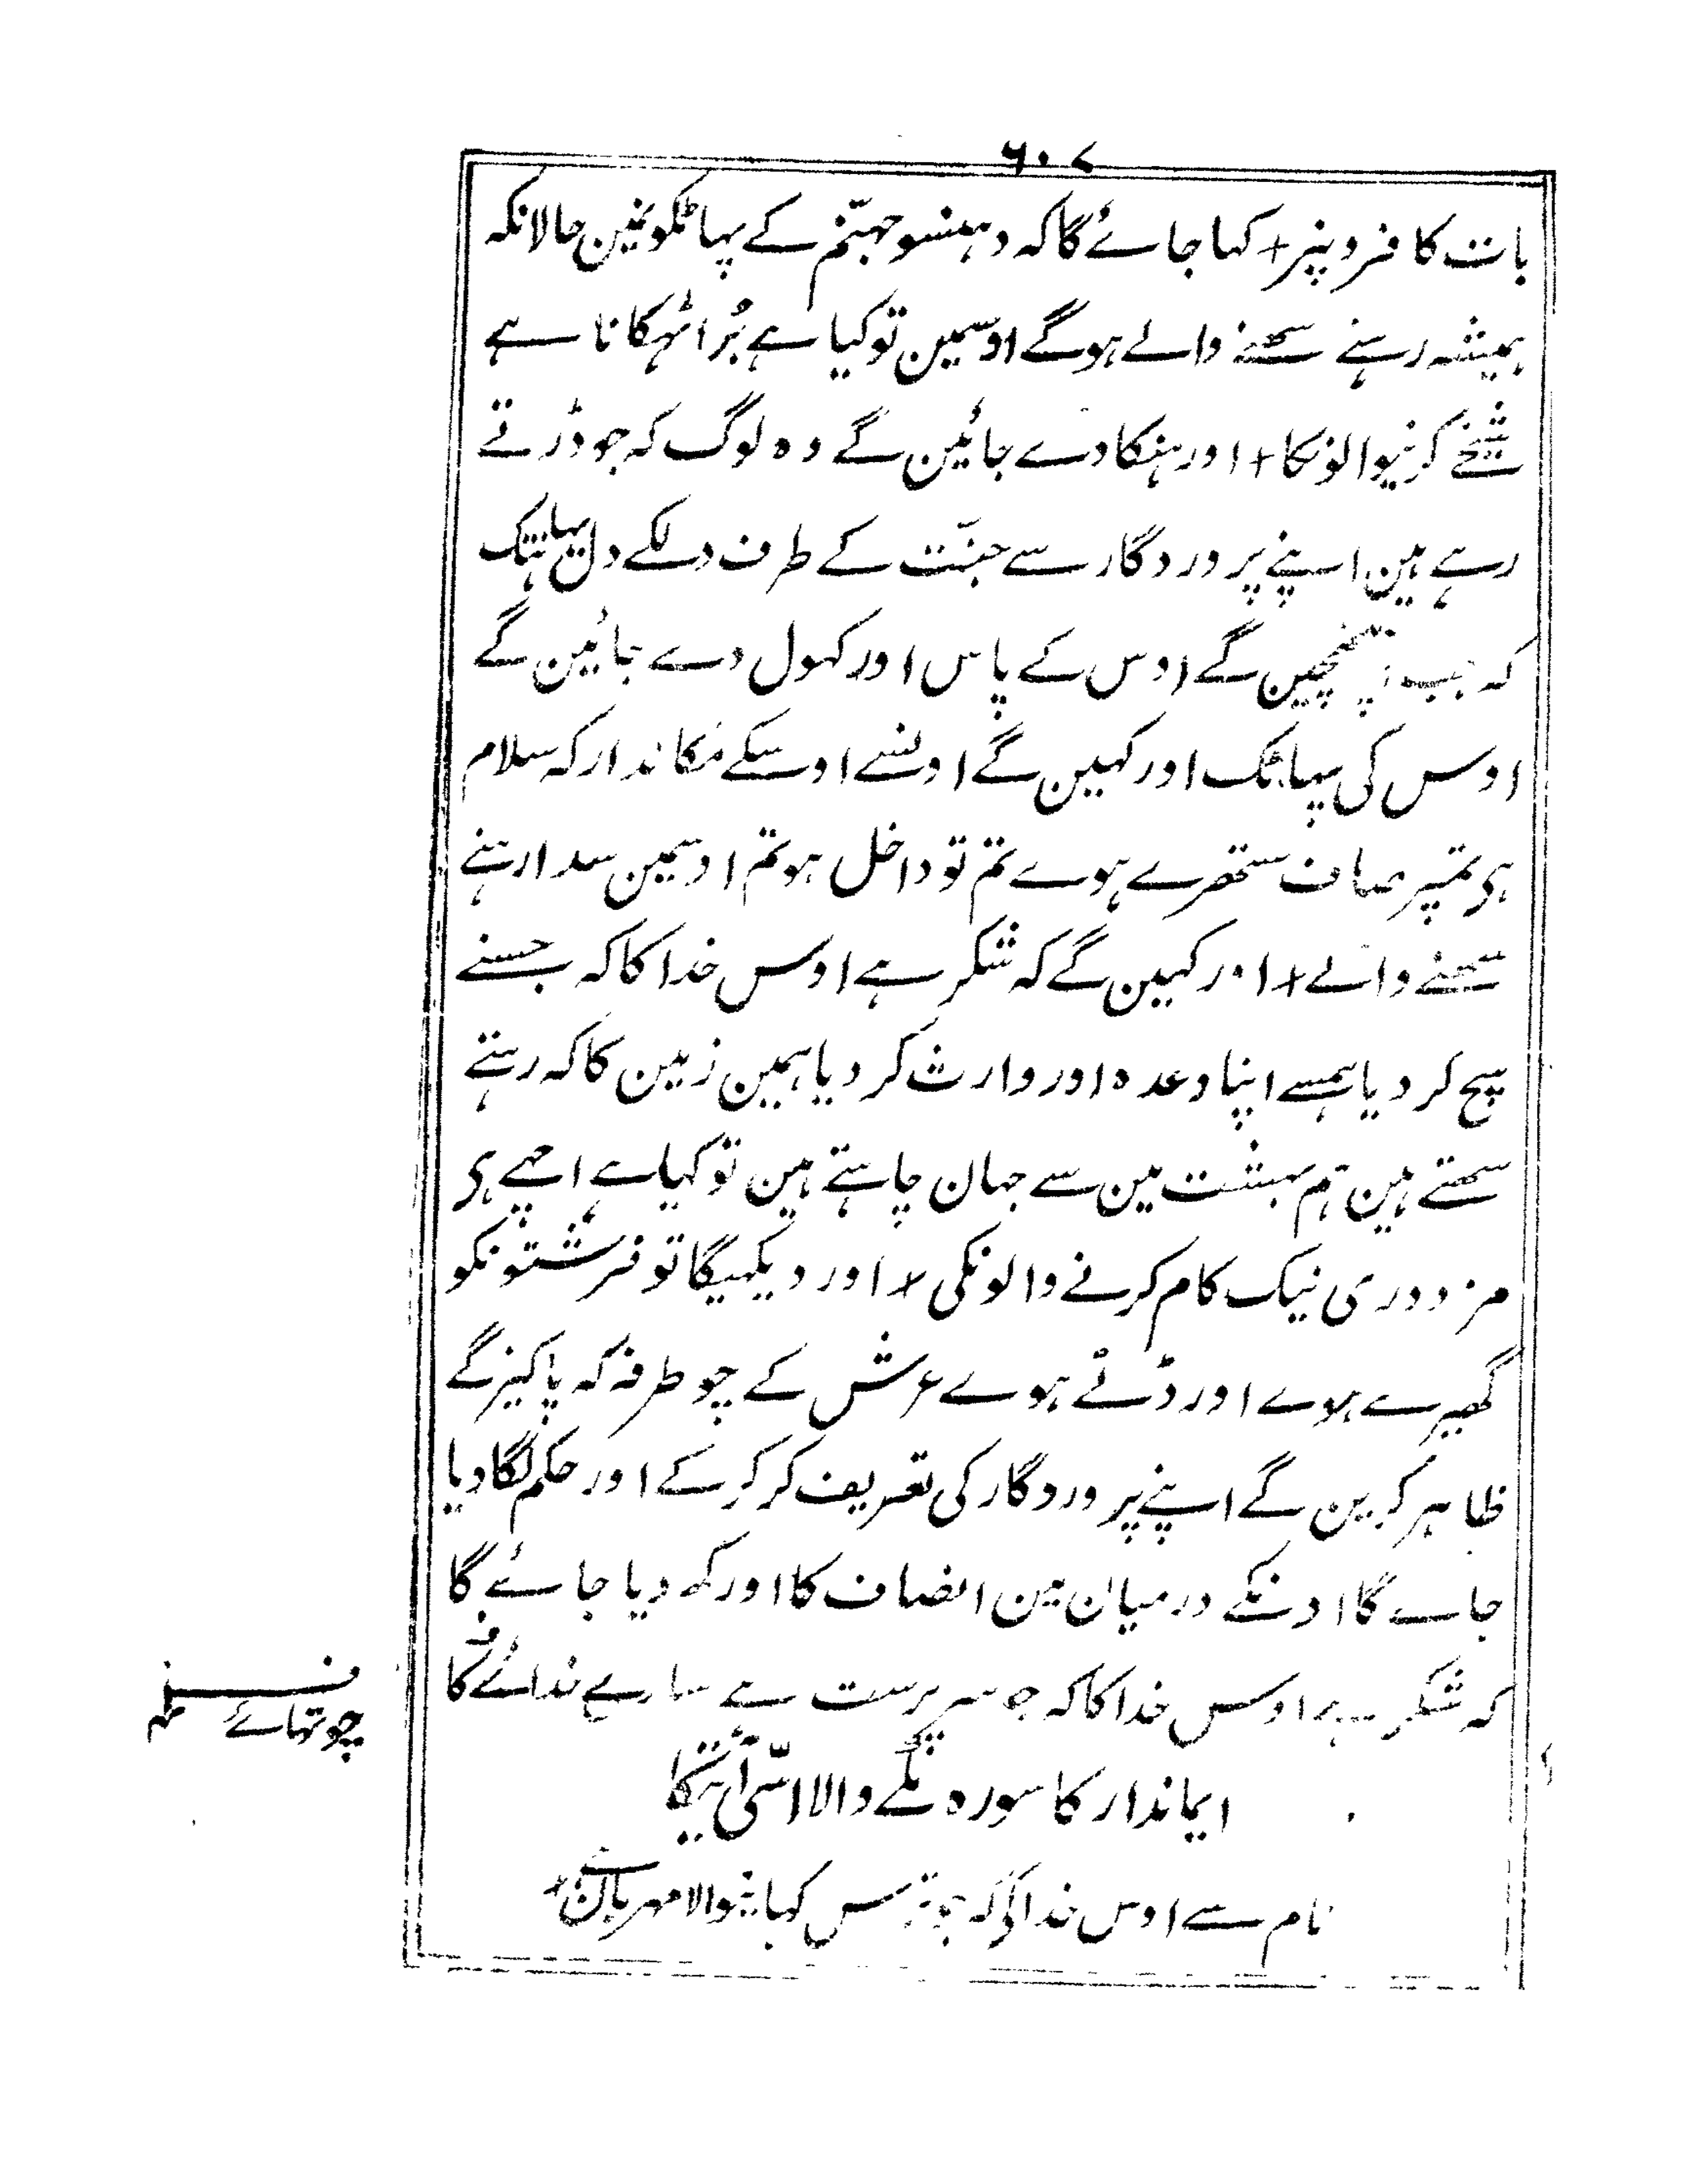 ۶۰۷
بات کافرونپر + کہا جائے گا کہ دہنسو جہنّم کے پہاٹکونمین حالانکہ
ہمیشہ رہنے سہنے والے ہوگے اوسمین تو کیا ہے بُرا ٹہکانا ہے
شیخے کرنیوالونکا + اور ہنکا دے جائین گے وہ لوگ کہ جو ڈرتے
رہے ہین اپنے پروردگار سے جنّت کے طرف دلکے دل یہانتک
کہ جب پہنچین گے اوس کے پاس اور کہول دے جائین گے
اوس کی پہاٹک اور کہین گے اونسے اوسکے مکاندار کہ سلام
ہی تمپر صاف ستھرے ہوے تم تو داخل ہو تم اوسمین سدا رہنے
سہنے والے + اور کہین گے کہ شکر ہے اوس خدا کا کہ جسنے
سچ کر دیا ہمسے اپنا وعدہ اور وارث کر دیا ہمین زمین کا کہ رہتے
سہتے ہین ہم بہشت مین سے جہان چاہتے ہین تو کیا ہے اچہے ہی
مزدوری نیک کام کرنے والونکی + اور دیکہیگا تو فرشتونکو
گھیرے ہوے اور ڈٹے ہوے عرش کے چوطرفہ کہ پاکیزگے
ظاہر کرین گے اپنے پروردگار کی تعریف کر کر کے اور حکم لگا دیا
جاے گا اونکے درمیان مین انصاف کا اور کہ دیا جائے گا
کہ شکر ہے اوس خدا کا کہ جو سرپرست ہے سارے خدائے کا
چوتہائے
ایماندار کا سورہ مکّے والا اسّی آیتکا
نام سے اوس خدا کی کہ جو ترس کہانیوالا مہربان ہے +